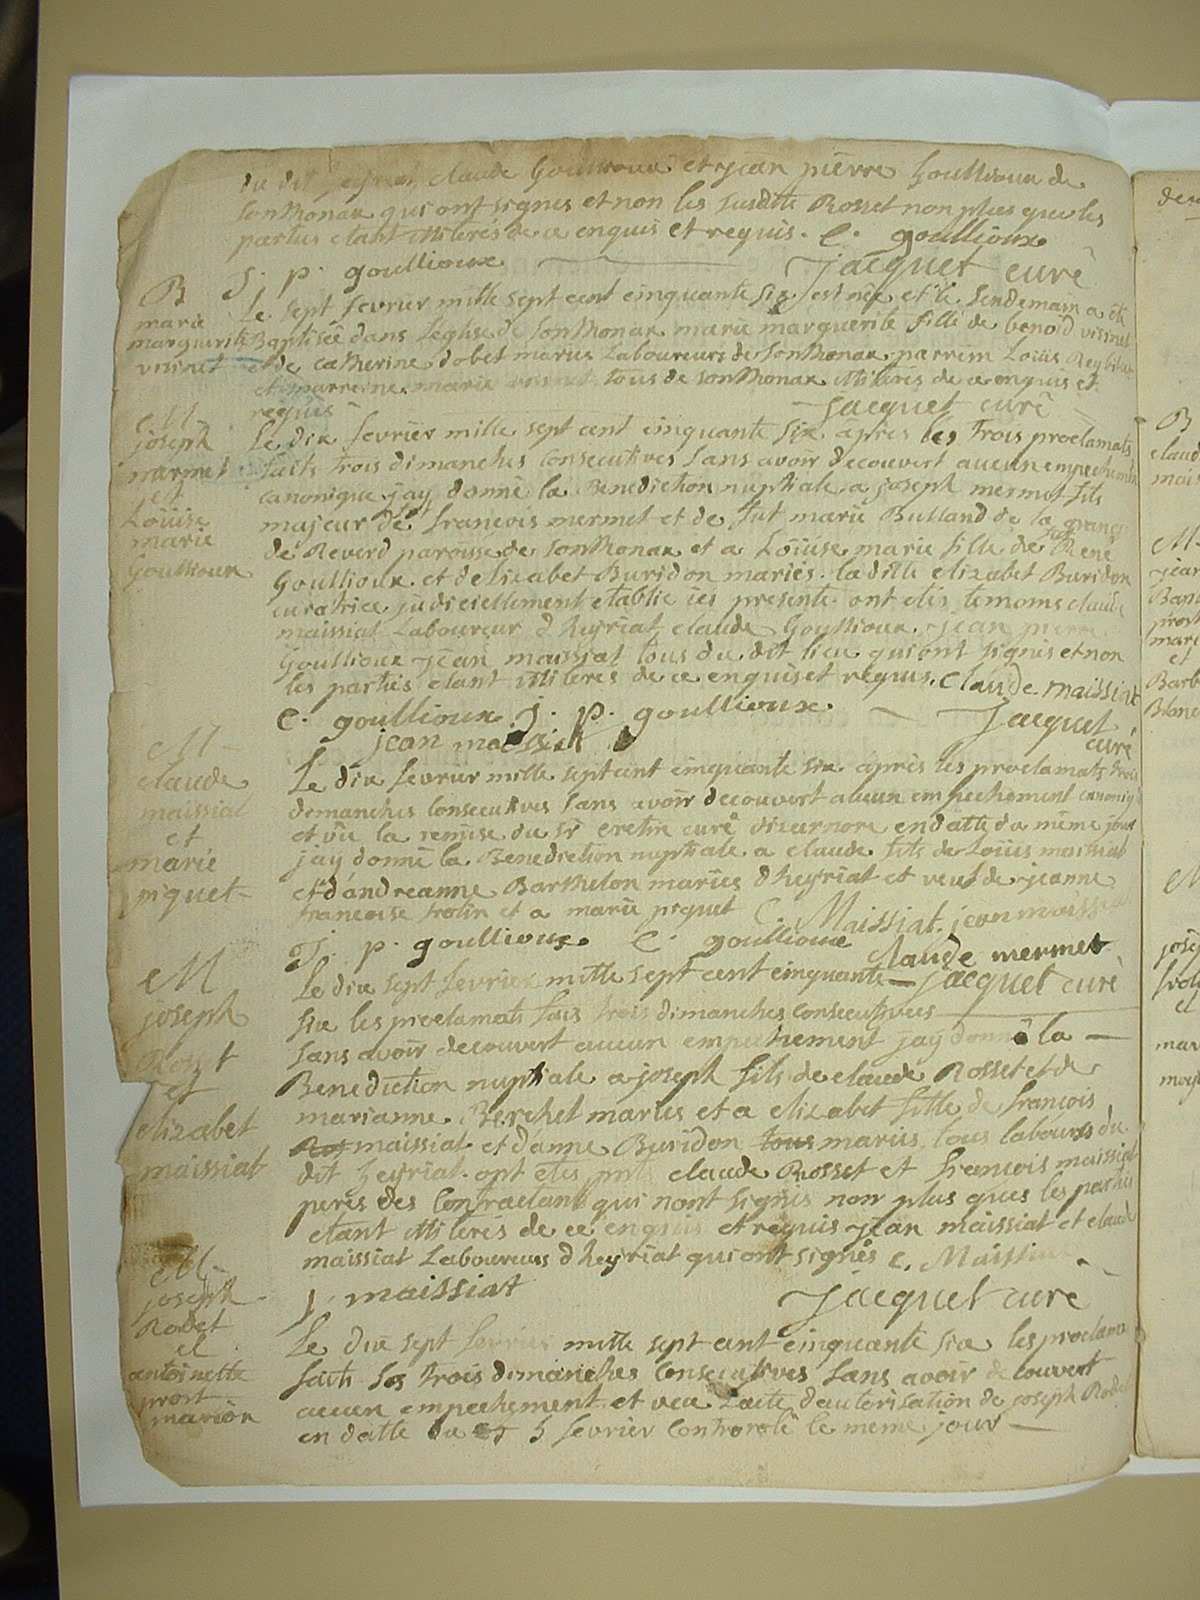 du dit heyriat, claude Goullioux et jean pierre Goullioux de
Sonthonax qui ont signes et non les susdits Rosset non plus que les
parties etant illiteres de ce enquis et requis. C. goullioux
J. p. goullioux Jacquet curé
B
marie
marguerite
voisnet
Le sept fevrier mille sept cent cinquante six est née et le lendemain a été
Baptisée dans leglise de Sonthonax marie marguerite fille de benoid
et de catherine dobet maries Laboureurs de Sonthonax. parrein Loüis
et marreine marie tous de sonthonax illiteres de ce enquis et
requis Jacquet curé
M
joseph
mermet
et
Loüise
marie
Goullioux
Le dix fevrier mille sept cent cinquante six apres les trois proclamats
faits trois dimanches consecutives sans avoir decouvert aucun empechement
canonique jay donné la Benediction nuptiale a joseph mermet fils
majeur de françois mermet et de fut marie Bulland de la grange
de Reverd paroisse de Sonthonax et a Loüise marie fille de René
Goullioux et delizabet Buridon mariés. la ditte elizabet Buridon
curatrice judiciellement etablie ici presente. ont etés temoins claude
maissiat Laboureur d heyriat, claude Goullioux. jean pierre
Goullioux jean maissiat tous du dit lieu qui ont signes et non
les parties etant illiteres de ce enquis et requis. Claude maissiat
C. goullioux J. p. goullioux Jacquet
jean maissiat curé
M
claude
maissiat
et
marie
piquet
Le dix fevrier mille sept cent cinquante six apres les proclamats trois
dimanches consecutives sans avoir decouvert aucun empechement
et vûe la remise du Sr cretin curé en datte du même jour
jay donné la Benediction nuptiale a claude fils de Loüis maissiat
et d'andreanne Barthelon maries d heyriat et veuf de jeanne
francoise et a marie piquet C. Maissiat. jean maissiat
J. p. goullioux C. goullioux claude mermet
Jacquet curé
M
joseph
Rosset
et
elizabet
maissiat
Le dix sept fevrier mille sept cent cinquante
six les proclamats fais trois dimanches consecutives
sans avoir decouvert aucun empechement jay donné la
Benediction nuptiale a joseph fils de claude Rosset et de
marianne Berchet maries et a elizabet fille de françois
maissiat et danne Buridon maries tous labours du
dit heyriat. ont etes pnts claude Rosset et françois maissiat
peres des Contractans qui nont signés non plus ques les parties
etant illiteres de ce enquis et requis jean maissiat et claude
maissiat Laboureurs d heyriat qui ont signés C. Maissiat
J. maissiat Jacquet curé
M
joseph
Rodet
et
antoinette
prost
marion
Le dix sept fevrier mille sept cent cinquante six les proclamats
faits les trois dimanches Consecutives sans avoir decouvert
aucun empechement. et veu Lacte dauterisation de joseph Rodet
en datte du 5 fevrier Controrolé le meme jour